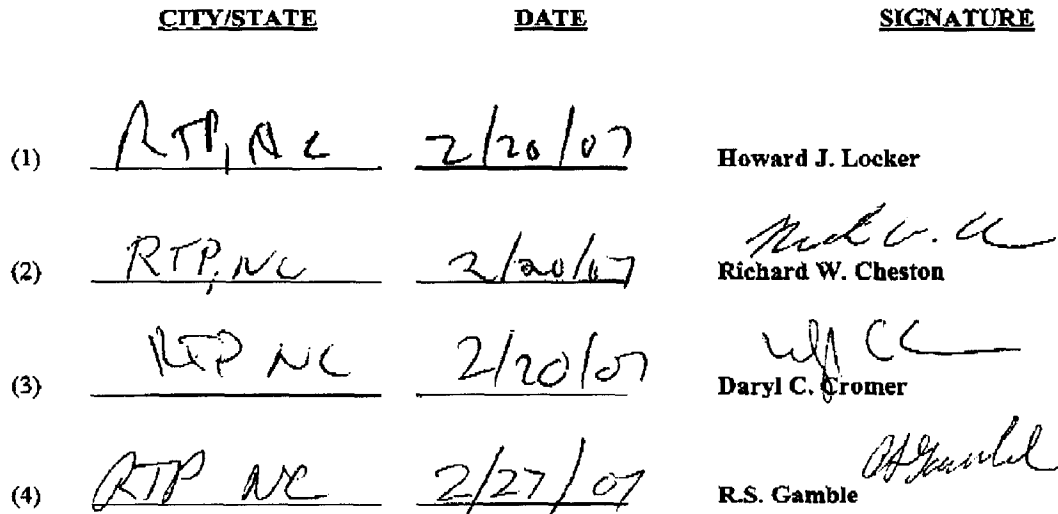 CITY/STATE DATE SIGNATURE
(1) RTP, NC 2/20/07 Howard J. Locker
(2) RTP, NC 2/20/07 Richard W. Cheston
(3) RTP NC 2/20/07 Daryl C. Cromer
(4) RTP NC 2/27/07 R.S. Gamble